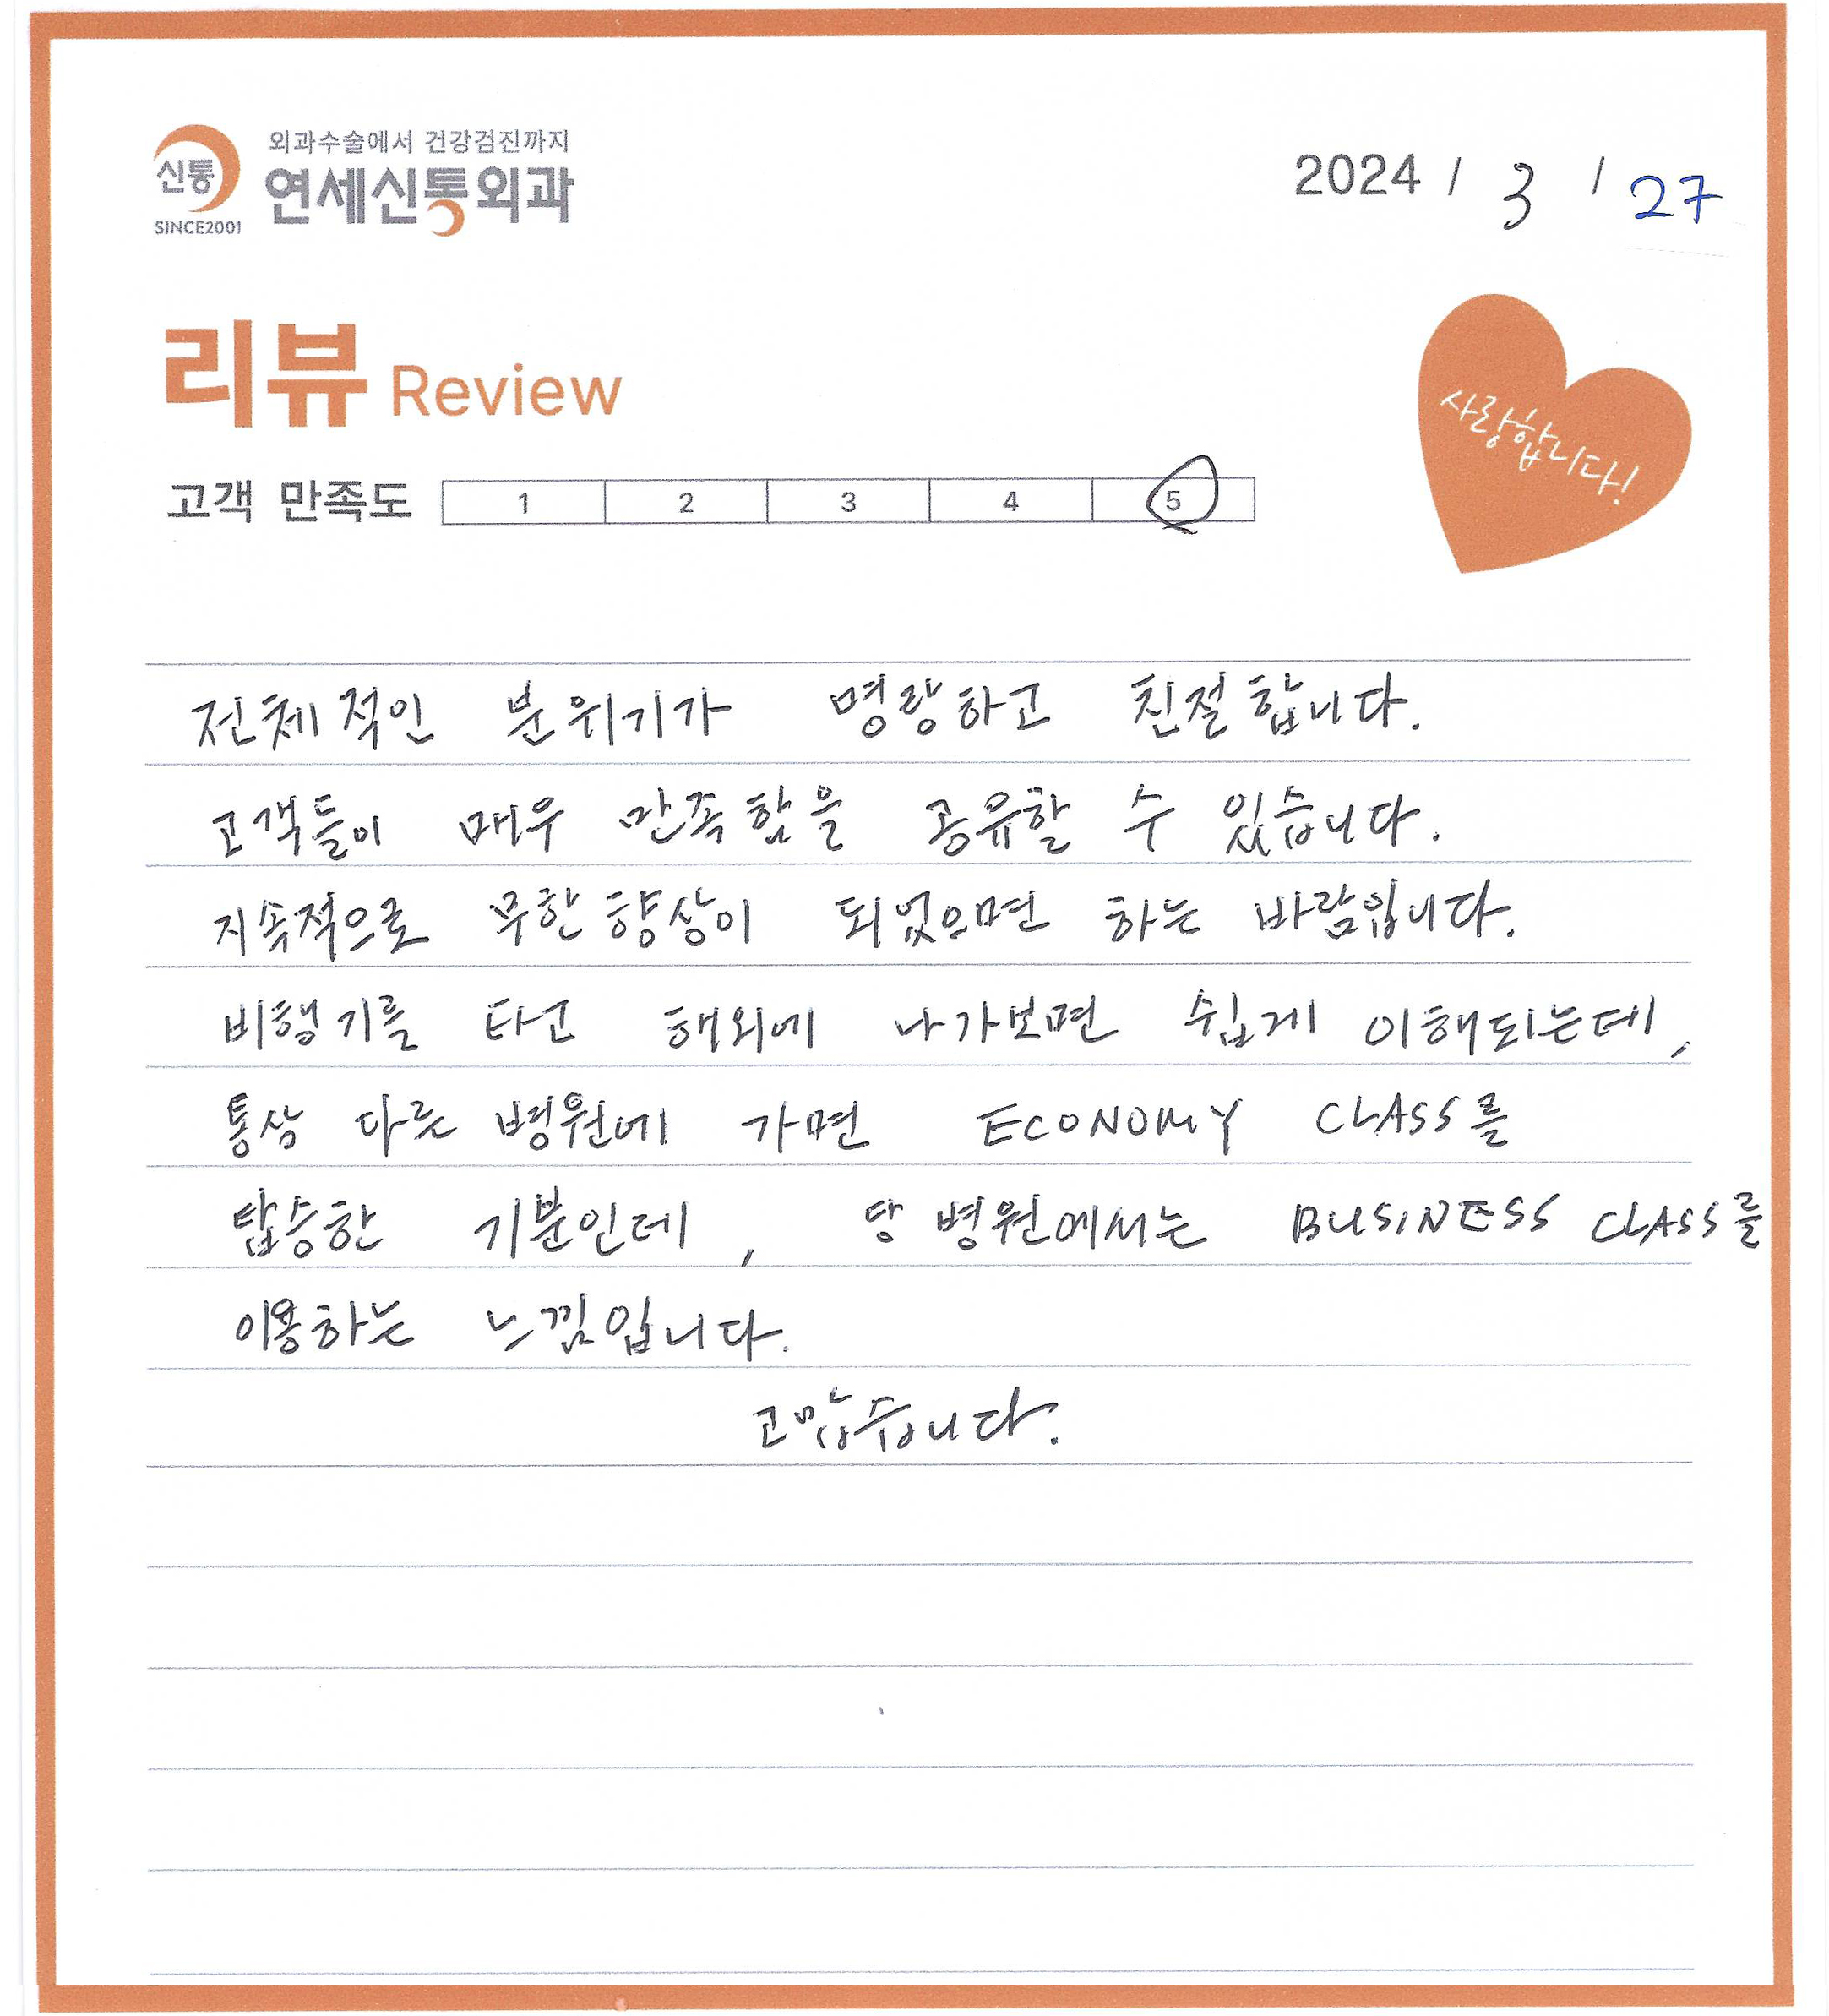 신통
SINCE2001
외과수술에서 건강검진까지
연세신통외과
2024 / 3 / 27
리뷰 Review
사랑합니다!
고객 만족도 1 2 3 4 5
전체적인 분위기가 명랑하고 친절합니다.
고객들이 매우 만족함을 공유할 수 있습니다.
지속적으로 무한향상이 되었으면 하는 바람입니다.
비행기를 타고 해외에 나가보면 쉽게 이해되는데,
통상 다른 병원에 가면 ECONOMY CLASS를
탑승한 기분인데, 당 병원에서는 BUSINESS CLASS를
이용하는 느낌입니다.
고맙습니다.